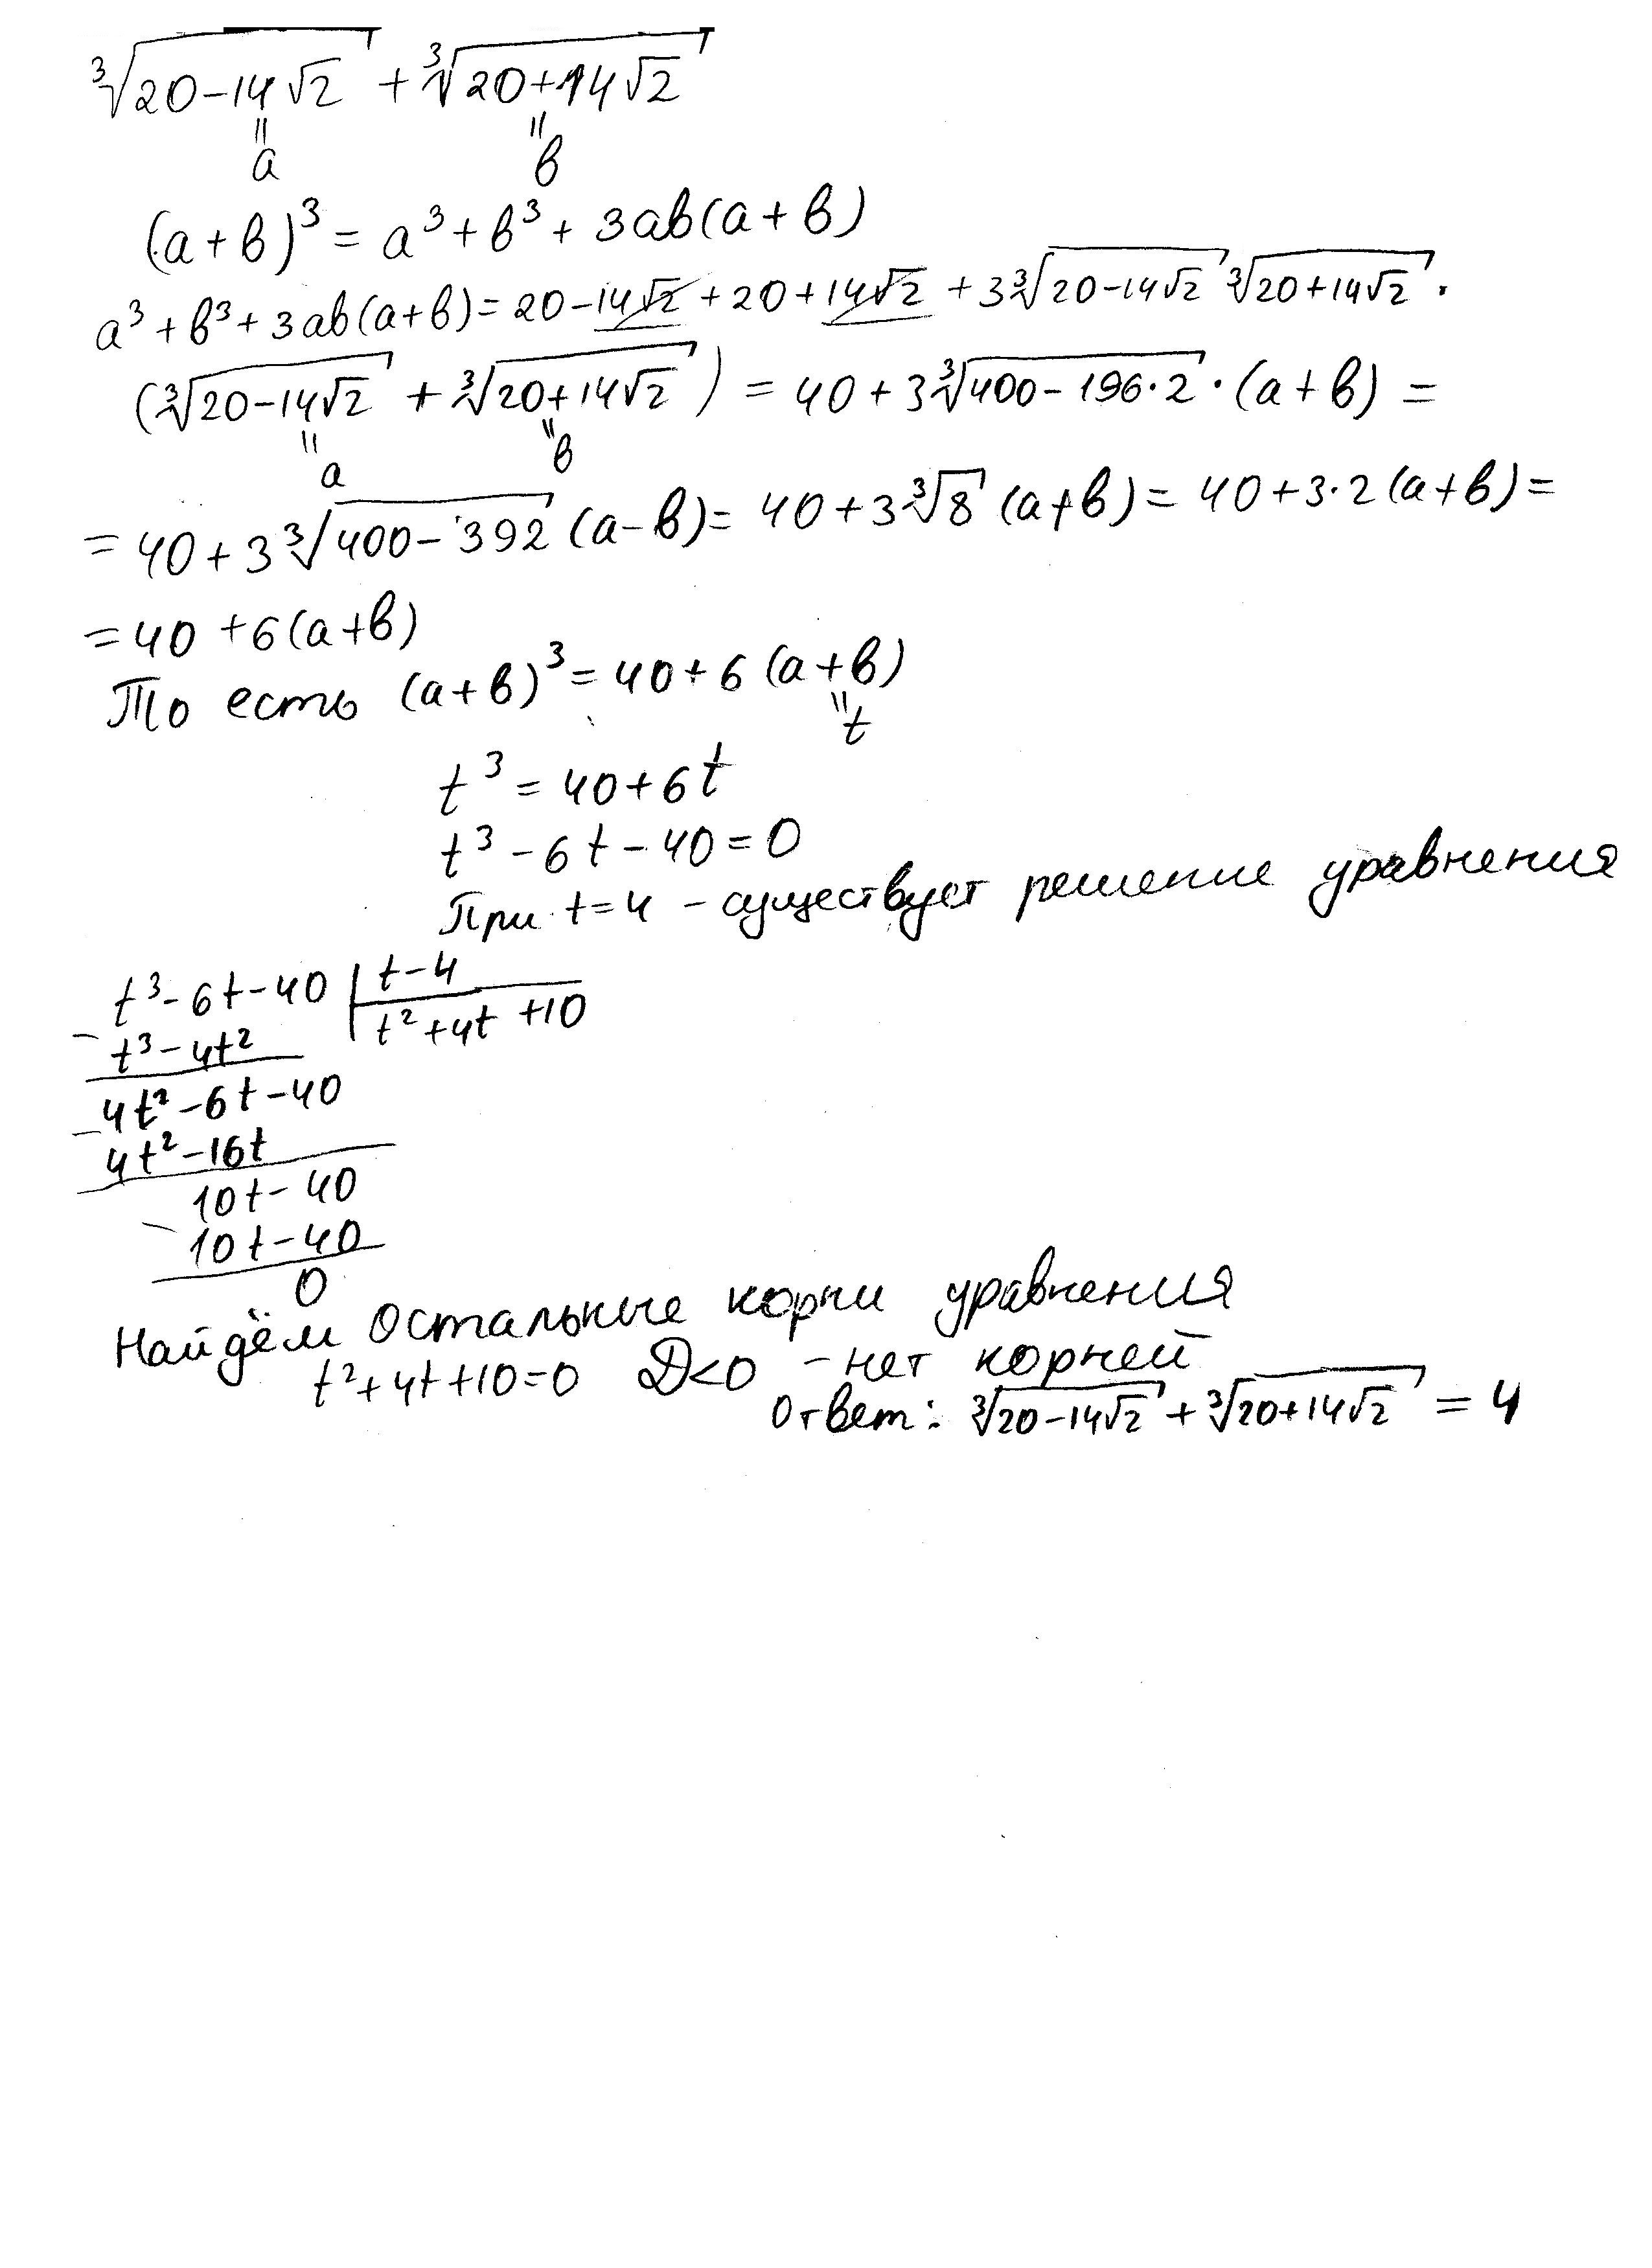 ∛(20-14√2) + ∛(20+14√2)
" "
a в
(a+в)³ = a³+в³+3aв(a+в)
a³+в³+3aв(a+в)=20-14√2+20+14√2+3∛(20-14√2) ∛(20+14√2) ·
(∛(20-14√2) + ∛(20+14√2)) = 40+3∛(400-196·2)·(a+в) =
" "
a в
=40+3∛(400-392) (a-в)= 40+3∛8 (a+в)= 40+3·2(a+в)=
=40+6(a+в)
То есть (a+в)³=40+6(a+в)
"
t
t³=40+6t
t³-6t-40=0
При t=4 - существует решение уравнения
t³-6t-40 | t-4
- t³-4t² | t²+4t+10
4t²-6t-40
- 4t²-16t
10t-40
- 10t-40
0
Найдём остальные корни уравнения
t²+4t+10=0 D<0 - нет корней
Ответ: ∛(20-14√2) + ∛(20+14√2) = 4